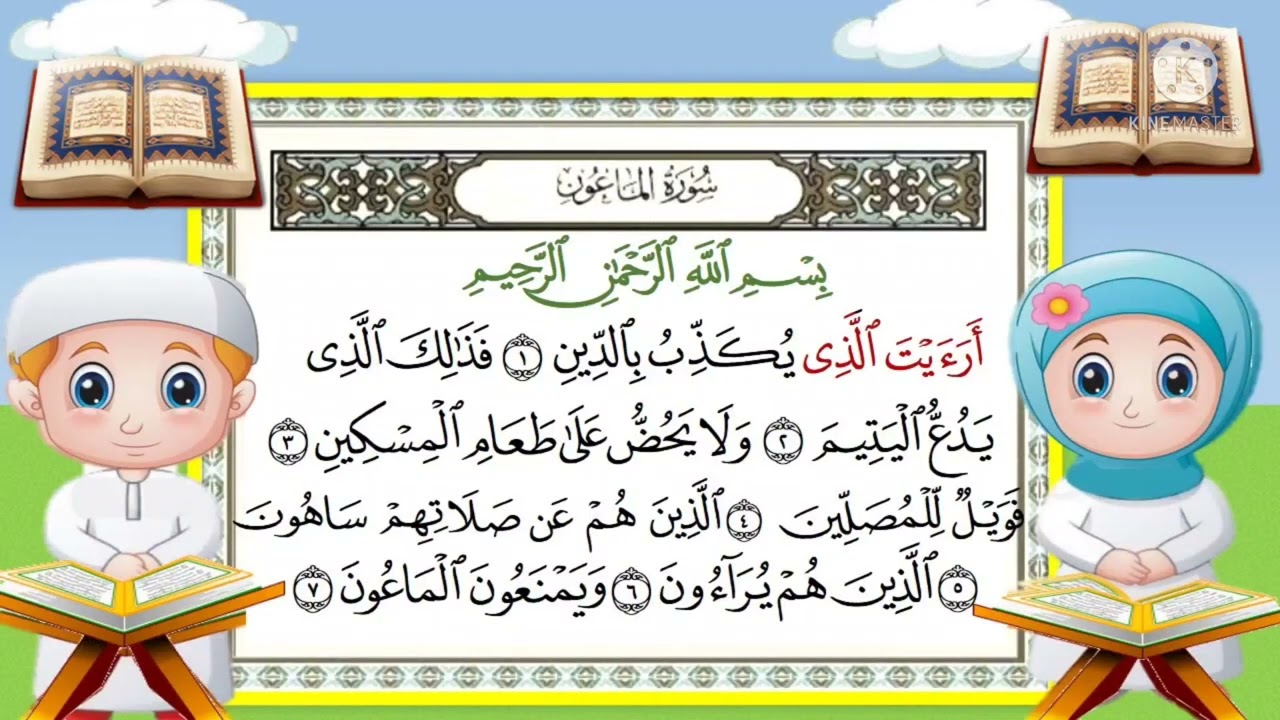 سُورَةُ الْمَاعُونِ
بِسْمِ ٱللَّهِ ٱلرَّحْمَٰنِ ٱلرَّحِيمِ
أَرَءَيْتَ ٱلَّذِى يُكَذِّبُ بِٱلدِّينِ ١ فَذَٰلِكَ ٱلَّذِى
يَدُعُّ ٱلْيَتِيمَ ٢ وَلَا يَحُضُّ عَلَىٰ طَعَامِ ٱلْمِسْكِينِ ٣
فَوَيْلٌ لِّلْمُصَلِّينَ ٤ ٱلَّذِينَ هُمْ عَن صَلَاتِهِمْ سَاهُونَ
٥ ٱلَّذِينَ هُمْ يُرَآءُونَ ٦ وَيَمْنَعُونَ ٱلْمَاعُونَ ٧
KINEMASTER